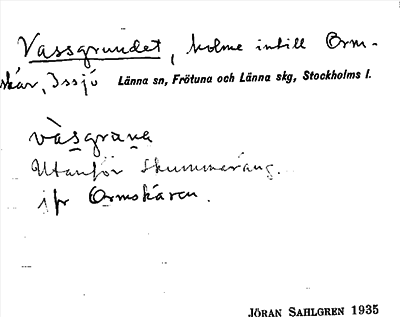 Vassgrundet, holme intill Orm-
skär, Issjö Länna sn, Frötuna och Länna skg, Stockholms l.
vàsgrana
Utanför Skummeräng.
jfr Ormskären.
JÖRAN SAHLGREN 1935